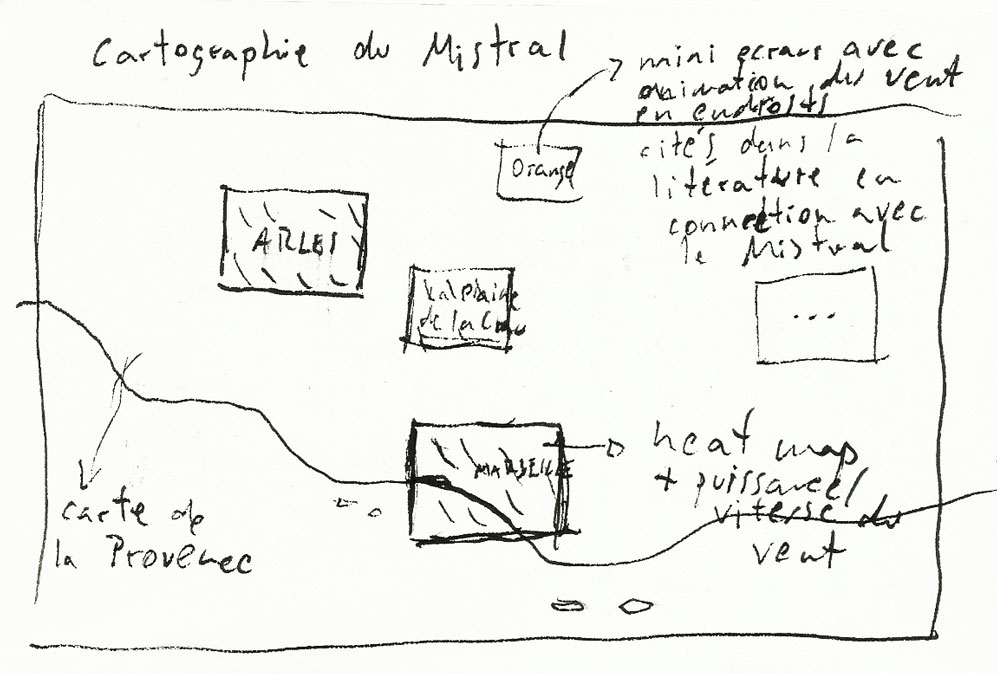 Cartographie du Mistral
mini ecrans avec
animation du vent
en endroits
cités dans la
litérature en
connection avec
le Mistral
Orange
ARLES
de la Crau
...
MARSEILLE
heat map
+ puissance/
vitesse du
vent
carte de
la Provenec